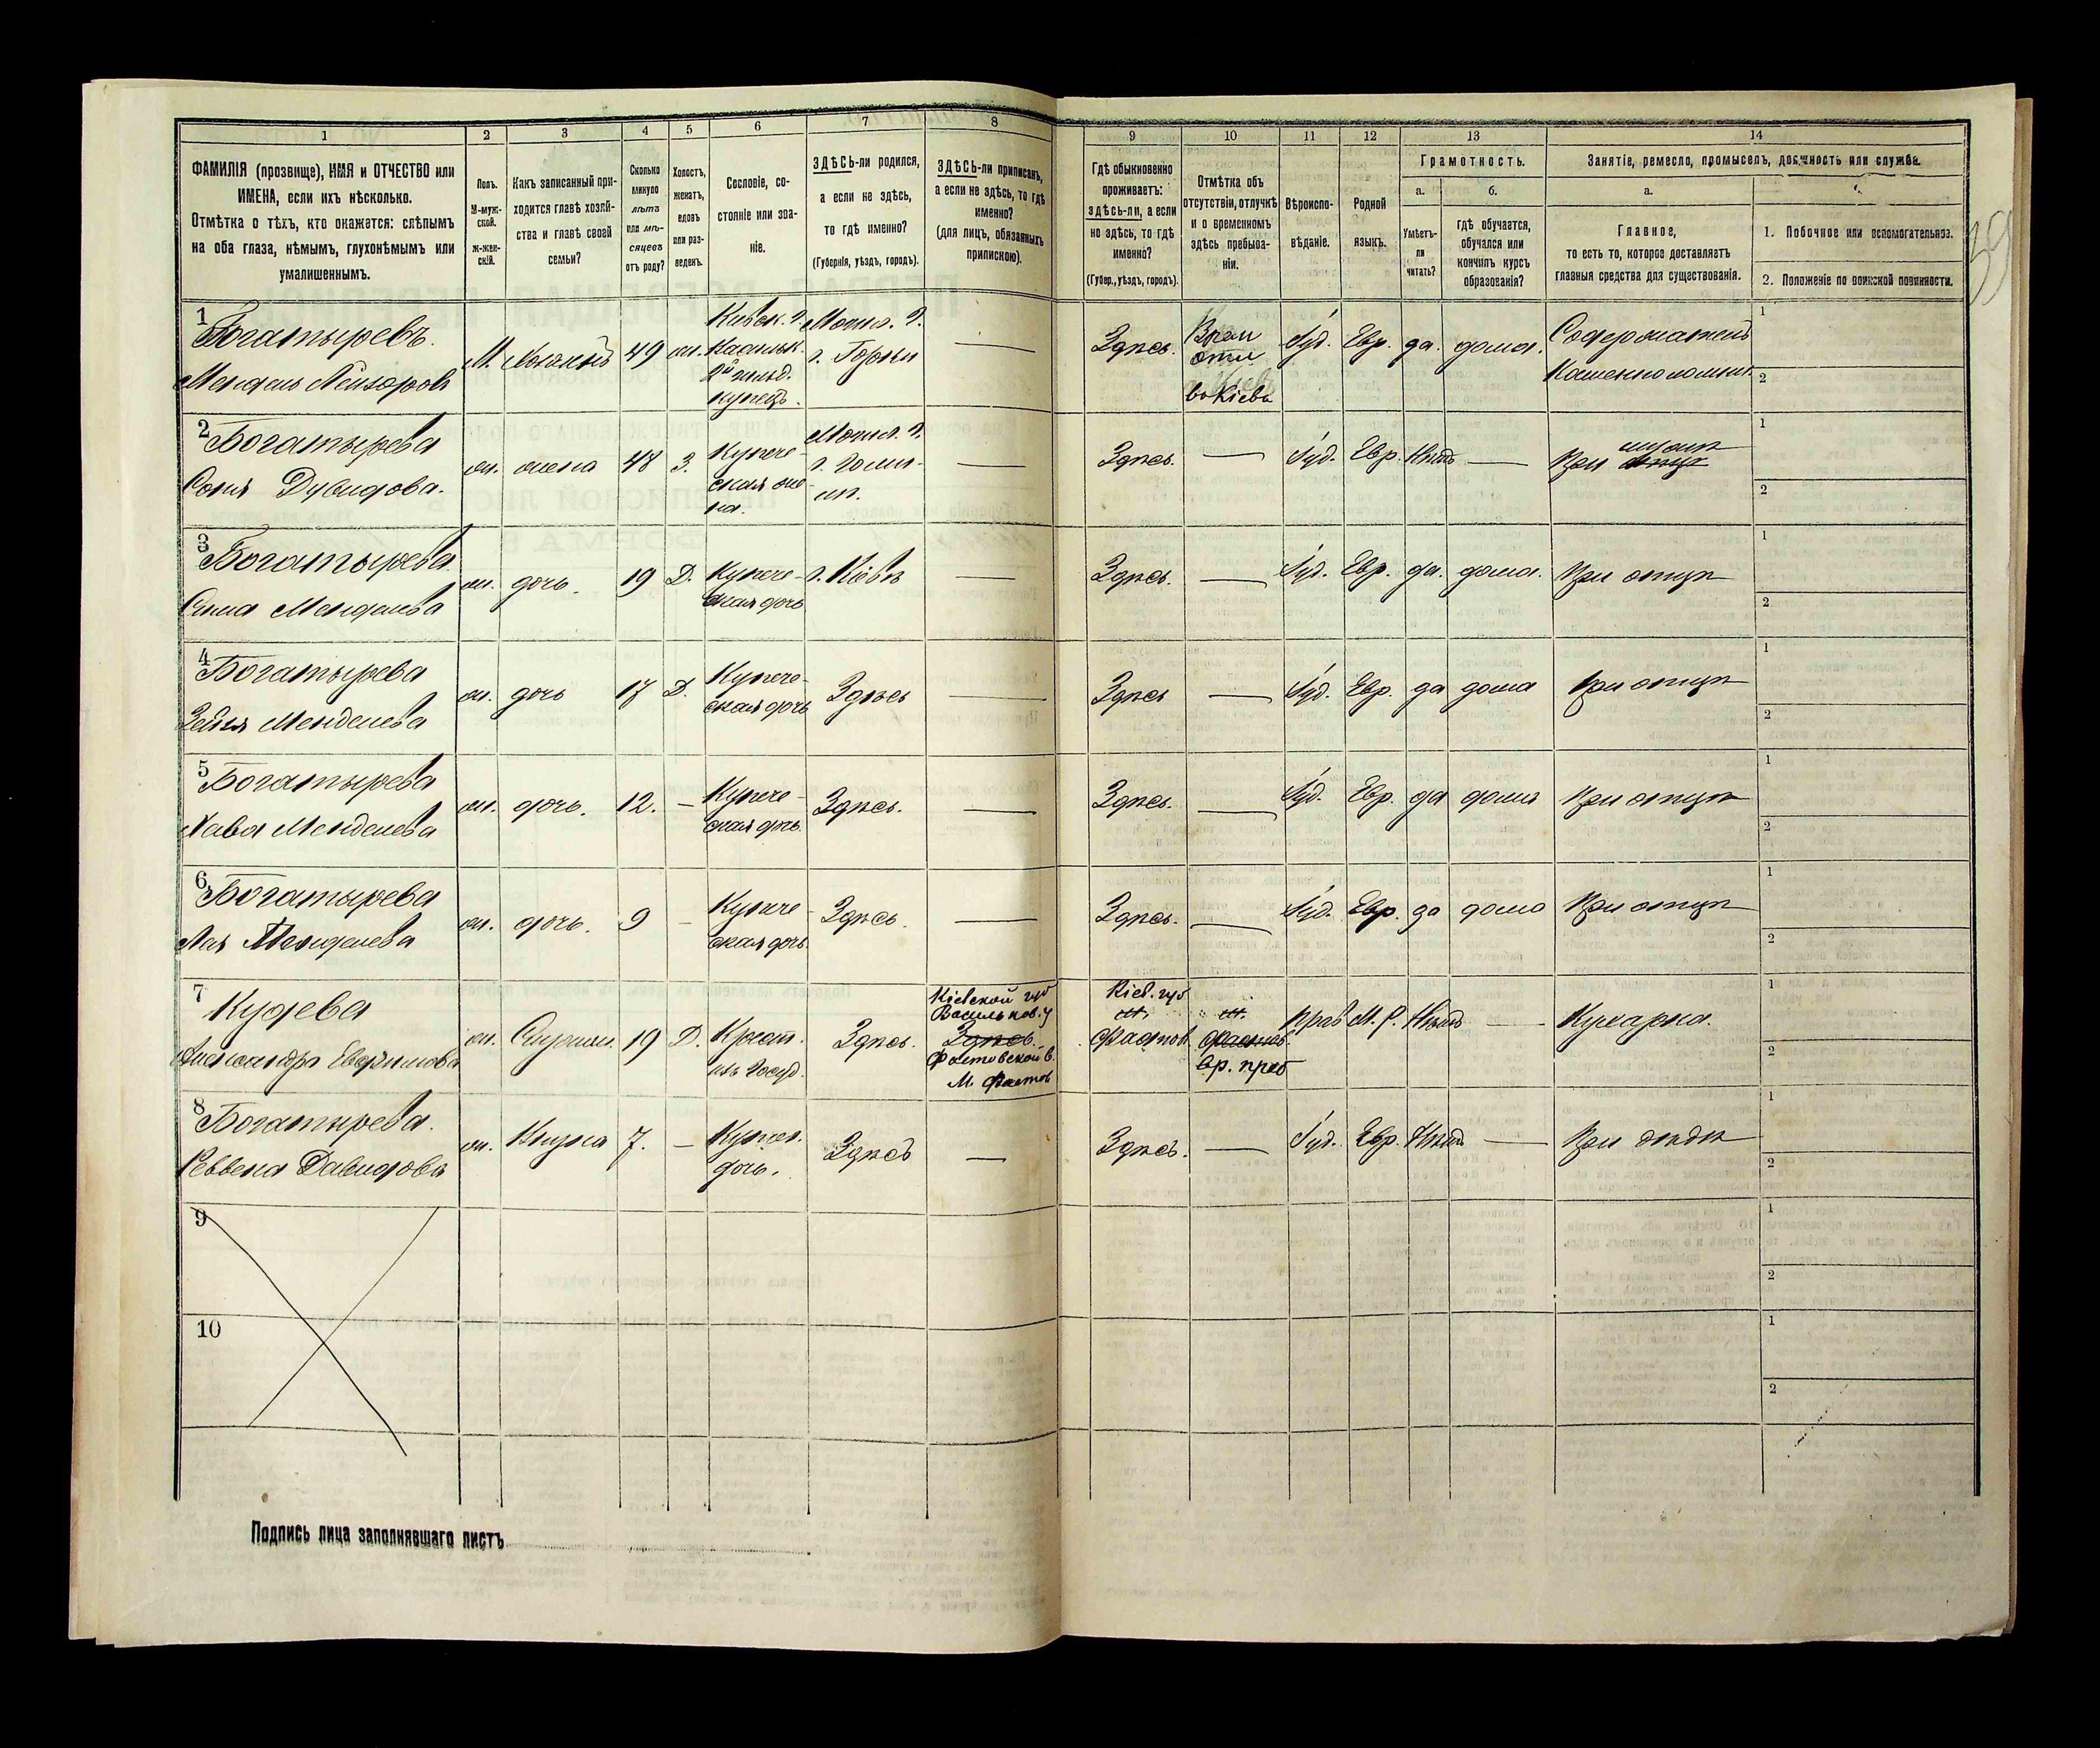 1 2 3 4 5 6 7 8 9 10 11 12 13 14
ФАМИЛІЯ (прозвище), ИМЯ и ОТЧЕСТВО или
ИМЕНА, если ихъ нѣсколько.
Отмѣтка о тѣхъ, кто окажется: слѣпымъ
на оба глаза, нѣмымъ, глухонѣмымъ или
умалишеннымъ.
Полъ.
М-муж-
ской.
Ж-жен-
скій.
Какъ записанный при-
ходится главѣ хозяй-
ства и главѣ своей
семьи?
Сколько
минуло
лѣтъ
или мѣ-
сяцевъ
отъ роду?
Холостъ,
женатъ,
вдовъ
или раз-
веденъ.
Сословіе, со-
стояніе или зва-
ніе.
ЗДѢСЬ-ли родился,
а если не здѣсь,
то гдѣ именно?
(Губернія, уѣздъ, городъ).
ЗДѢСЬ-ли приписанъ,
а если не здѣсь, то гдѣ
именно?
(для лицъ, обязанныхъ
припискою).
Гдѣ обыкновенно
проживаетъ:
здѣсь-ли, а если
не здѣсь, то гдѣ
именно?
(Губер., уѣздъ, городъ).
Отмѣтка объ
отсутствіи, отлучкѣ
и о временномъ
здѣсь пребыва-
ніи.
Вѣроиспо-
вѣданіе.
Родной
языкъ.
Грамотность.
а.
Умѣетъ-
ли
читать?
б.
гдѣ обучается,
обучался или
кончилъ курсъ
образованія?
Занятіе, ремесло, промыселъ, должность или служба.
а.
Главное,
то есть то, которое доставляетъ
главныя средства для существованія.
1. Побочное или вспомогательное.
2. Положеніе по воинской повинности.
39
1
Богатыревъ.
Мендель Лейзоровъ
М. 49 Кіевск. г.
Васильк.
2й гильд.
купецъ.
Могил. г.
г. Горки
—
Здѣсь.
въ Кіевѣ
Іуд. Евр. да. дома.
1
2
2
Богатырева
Соня Давидова.
ж. жена 48 З.
Купече-
ская же-
на.
Могил. г.
—
Здѣсь. — Іуд. Евр. Нѣтъ —
При мужѣ
1
2
3
Богатырева
Сима Менделева
ж. дочь. 19 Д.
Купече-
ская дочь
г. Кіевъ
—
Здѣсь. — Іуд. Евр. да. дома. При отцѣ
1
2
4
Богатырева
Менделева
ж. дочь 17 Д.
Купече-
ская дочь
Здѣсь
—
Здѣсь — Іуд. Евр. да дома При отцѣ
1
2
5
Богатырева
Хава Менделева
ж. дочь. 12. —
Купече-
ская дочь.
Здѣсь.
—
Здѣсь. — Іуд. Евр. да дома При отцѣ
1
2
6
Богатырева
Лея Менделева
ж. дочь. 9 —
Купече-
ская дочь.
Здѣсь.
—
Здѣсь. — Іуд. Евр. да дома При отцѣ
1
2
7
Кудева
Александра Евфимова
ж. 19 Д.
Крест.
изъ Госуд.
Здѣсь.
Кіевской губ
Васильков. у
Здѣсь.
Фастовской в.
М. Фастов
Кіев. губ
м.
Фастов
м.
Фастов.
вр. преб
прав М. Р. Нѣтъ —
Кухарка.
1
2
8
Богатырева.
Ревекка Давидова
ж. Внучка 7. —
Купеч.
дочь.
Здѣсь
—
Здѣсь. — Іуд. Евр. Нѣтъ — При дѣдѣ
1
2
9
1
2
10
1
2
Подпись лица заполнявшаго листъ